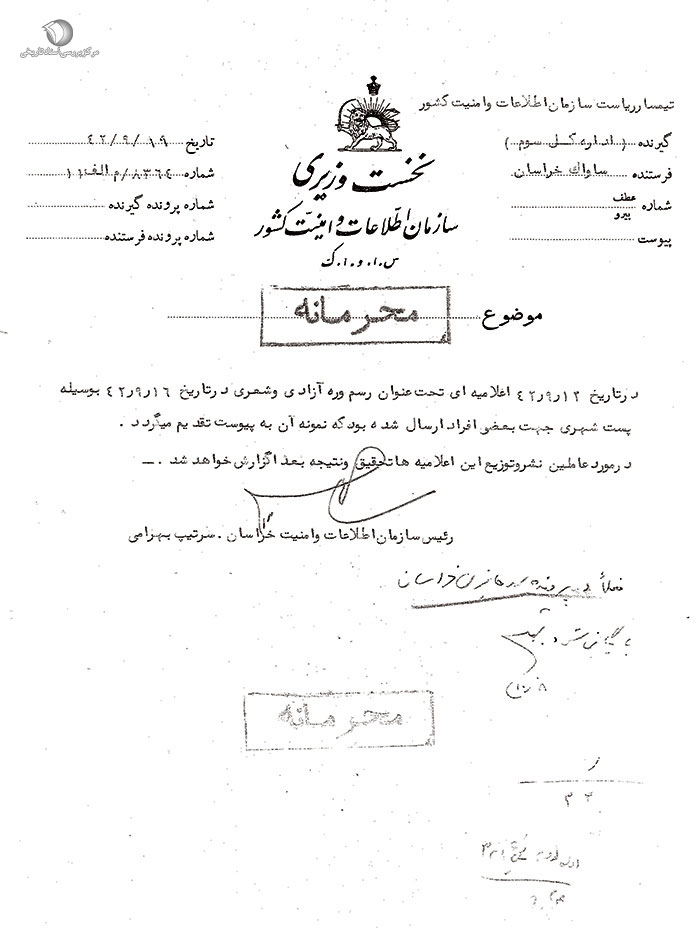 مرکز بررسی اسناد تاریخی
تیمسار ریاست سازمان اطلاعات و امنیت کشور
گیرنده (اداره کل سوم)
فرستنده ساواک خراسان
شماره عطف
پیرو
پیوست
نخست وزیری
سازمان اطلاعات و امنیت کشور
س.ا.و.ا.ک
تاریخ ۴۲/۹/۱۹
شماره ۸۳۶۴/م الف ۱۱
شماره پرونده گیرنده
شماره پرونده فرستنده
موضوع
محرمانه
در تاریخ ۴۲٫۹٫۱۲ اعلامیه ای تحت عنوان رسم وره آزادی وشعری در تاریخ ۴۲٫۹٫۱۶ بوسیله
پست شهری جهت بعضی افراد ارسال شده بود که نمونه آن به پیوست تقدیم میگردد .
در مورد عاملین نشر و توزیع این اعلامیه ها تحقیق و نتیجه بعدا گزارش خواهد شد . ــ
رئیس سازمان اطلاعات و امنیت خراسان . سرتیپ بهرامی
فعلاً در پرونده خراسان
بایگانی شود
محرمانه